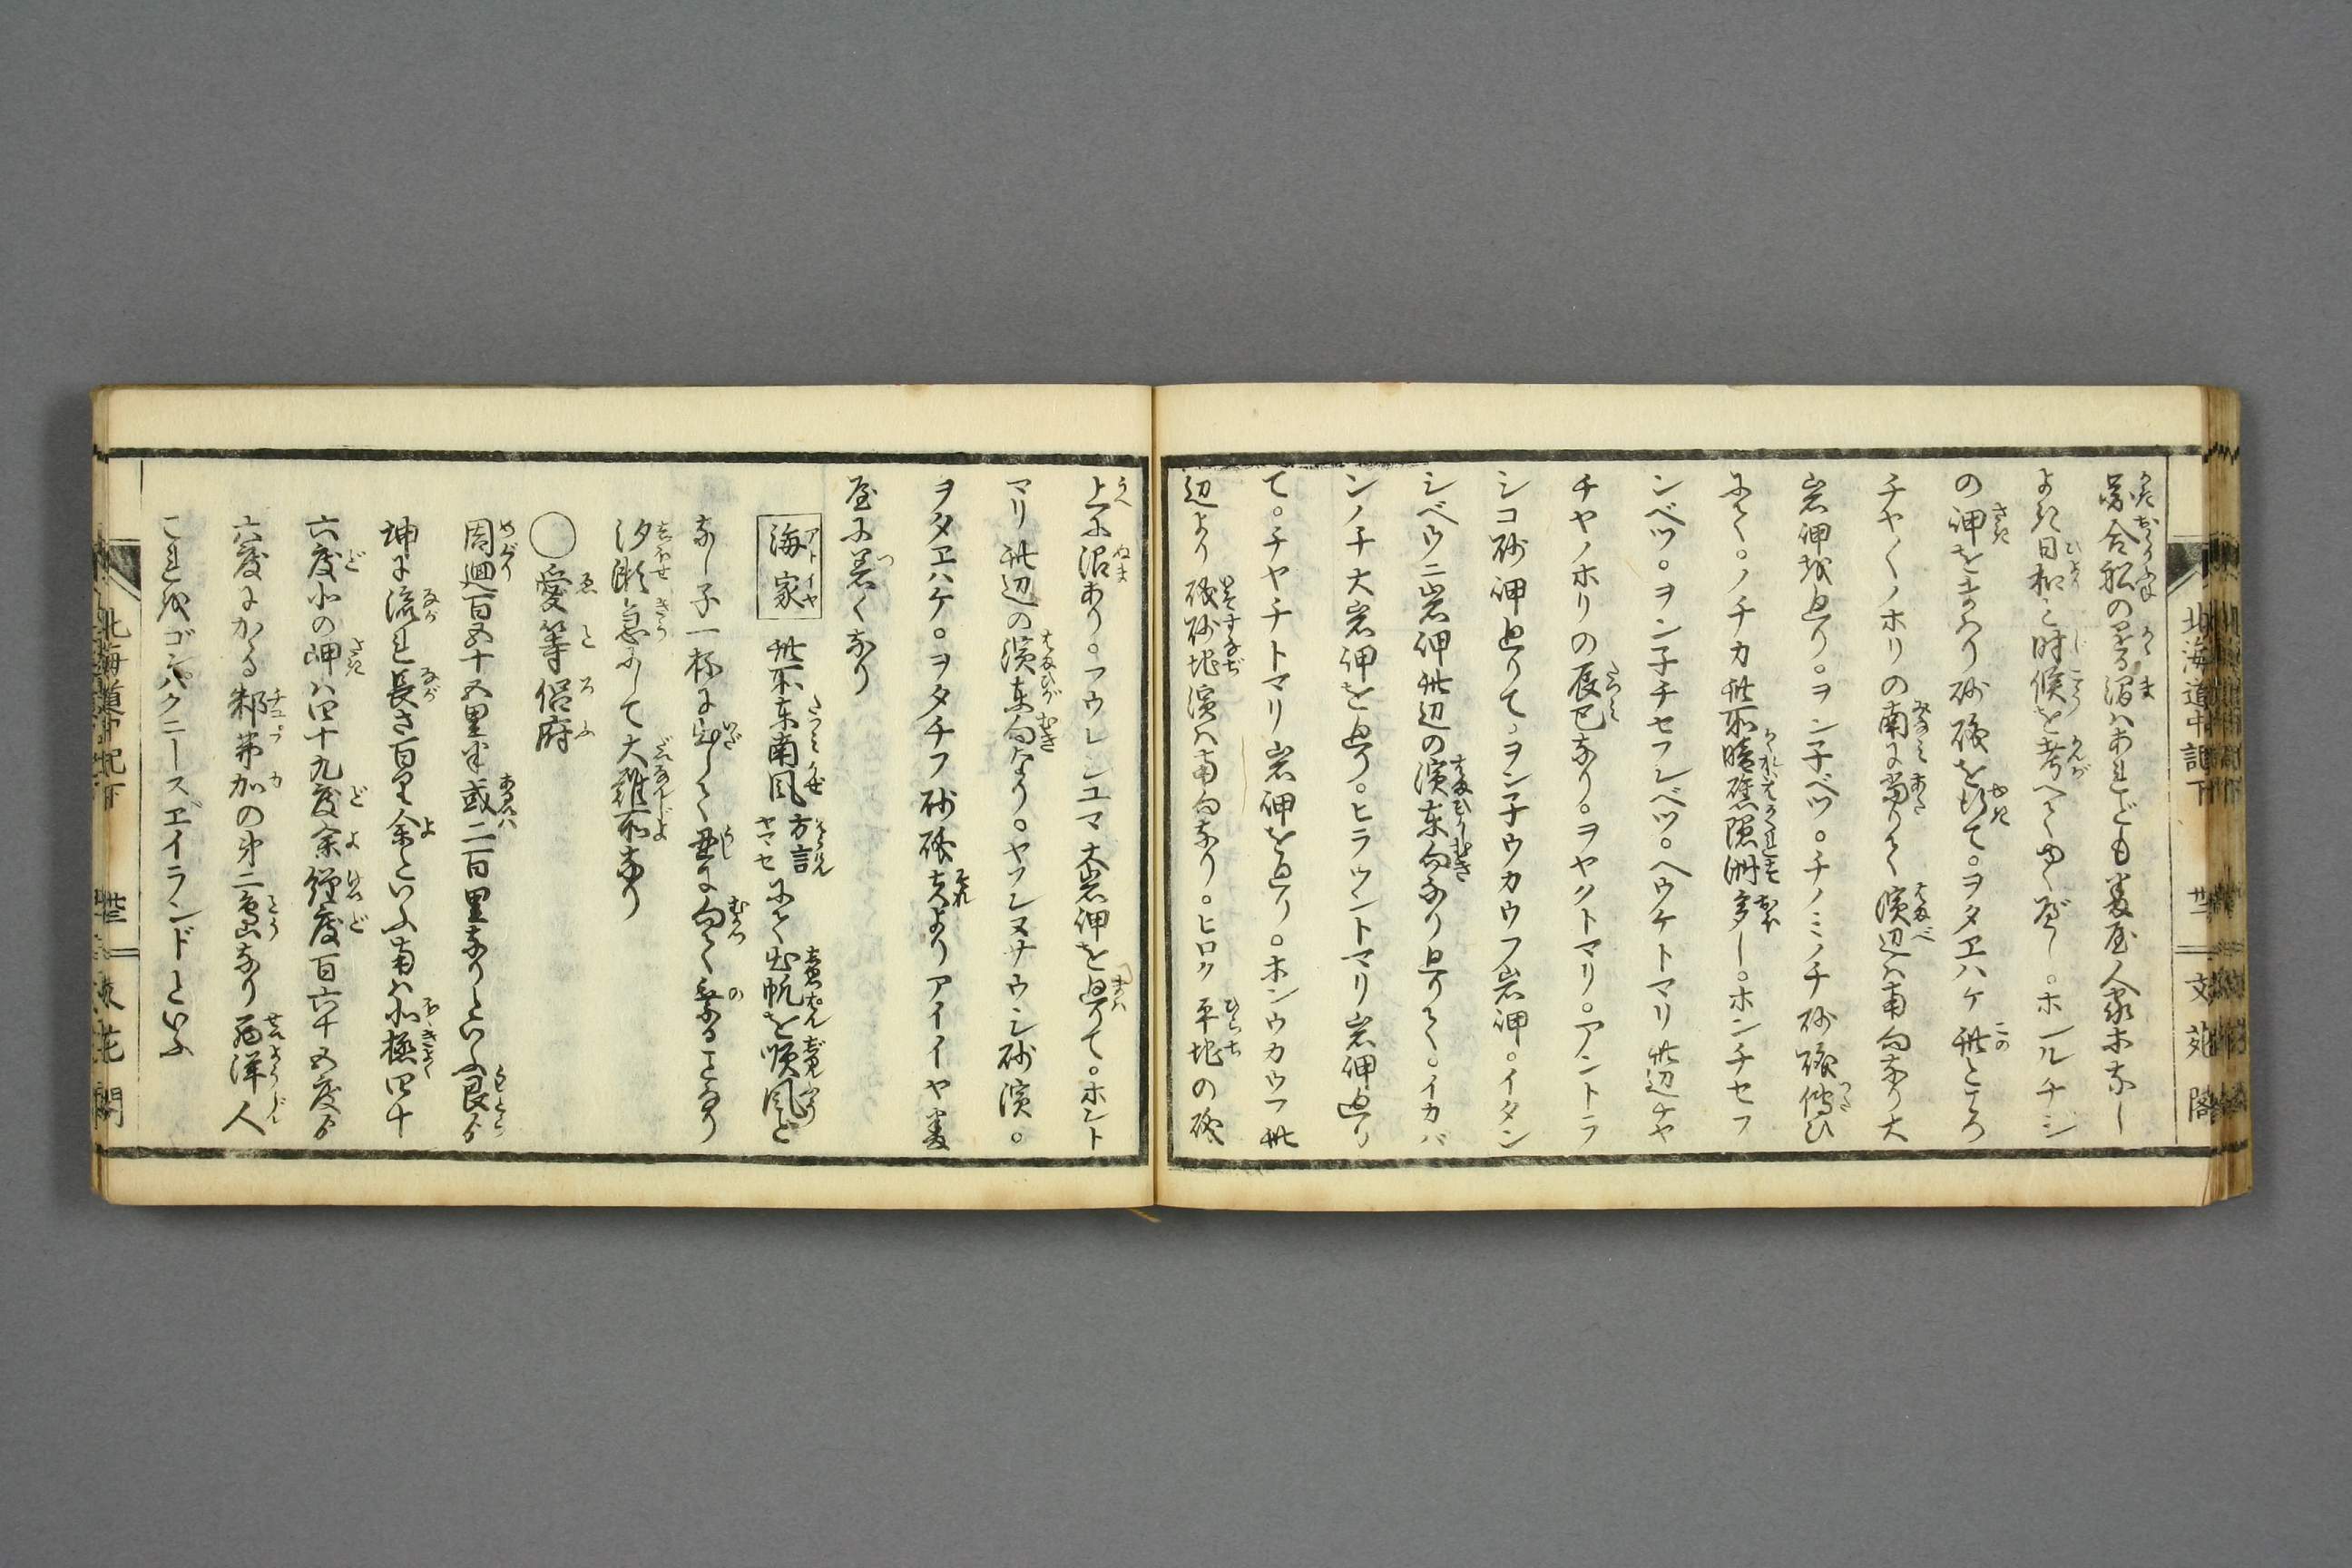 場合船のかゝる澗ハあれども番屋人家ホなし
よき日和と時候を考へてゆくべし。ホンルチシ
の岬をまハり砂磯を行て。ヲタヱハケ此ところ
チヤ〳〵ノホリの南に当りて濱辺ハ南向なり大
岩岬越廻り。ヲン子ベツ。チノミノチ砂磯傳ひ
にて。ノチカ此所暗礁隠洲多し。ホンチセフ
ンベツ。ヲン子チセフンベツ。ヘウケトマリ此辺チヤ
チヤノホリの辰巳なり。ヲヤクトマリ。アントラ
シコ砂岬廻りて。ヲン子ウカウフ岩岬。イタン
シベウニ岩岬此辺の濱東向なり廻りて。イカバ
ンノチ大岩岬を廻り。ヒラウントマリ岩岬廻り
て。チヤチトマリ岩岬を廻り。ホンウカウフ此
辺より磯砂地濱ハ南向なり。ヒロク平地の磯
北海道中記下 廿二 文苑閣
上に沼あり。フウレシユマ大岩岬を廻りて。ホント
マリ此辺の濱東向なり。ヤフンヌサウシ砂濱。
ヲタヱハケ。ヲタチフ砂磯夫よりアイイヤ番
屋に着くなり
海家 此所東南風方言ヤマセにて出帆を順風と
なし子一杯に出して丑に向て乗ることあり
汐瀬急にして大難所なり
◯愛等侶府
周廻百五十五里半或二百里なりといふ艮ゟ
坤に流れ長さ百里余といふ南ハ北極四十
六度北の岬ハ四十九度余經度百六十五度ゟ
六度にかゝる郗苐加の第二島なり西洋人
これ越ゴンパクニースヱイランドといふ
北海道中記下 廿三